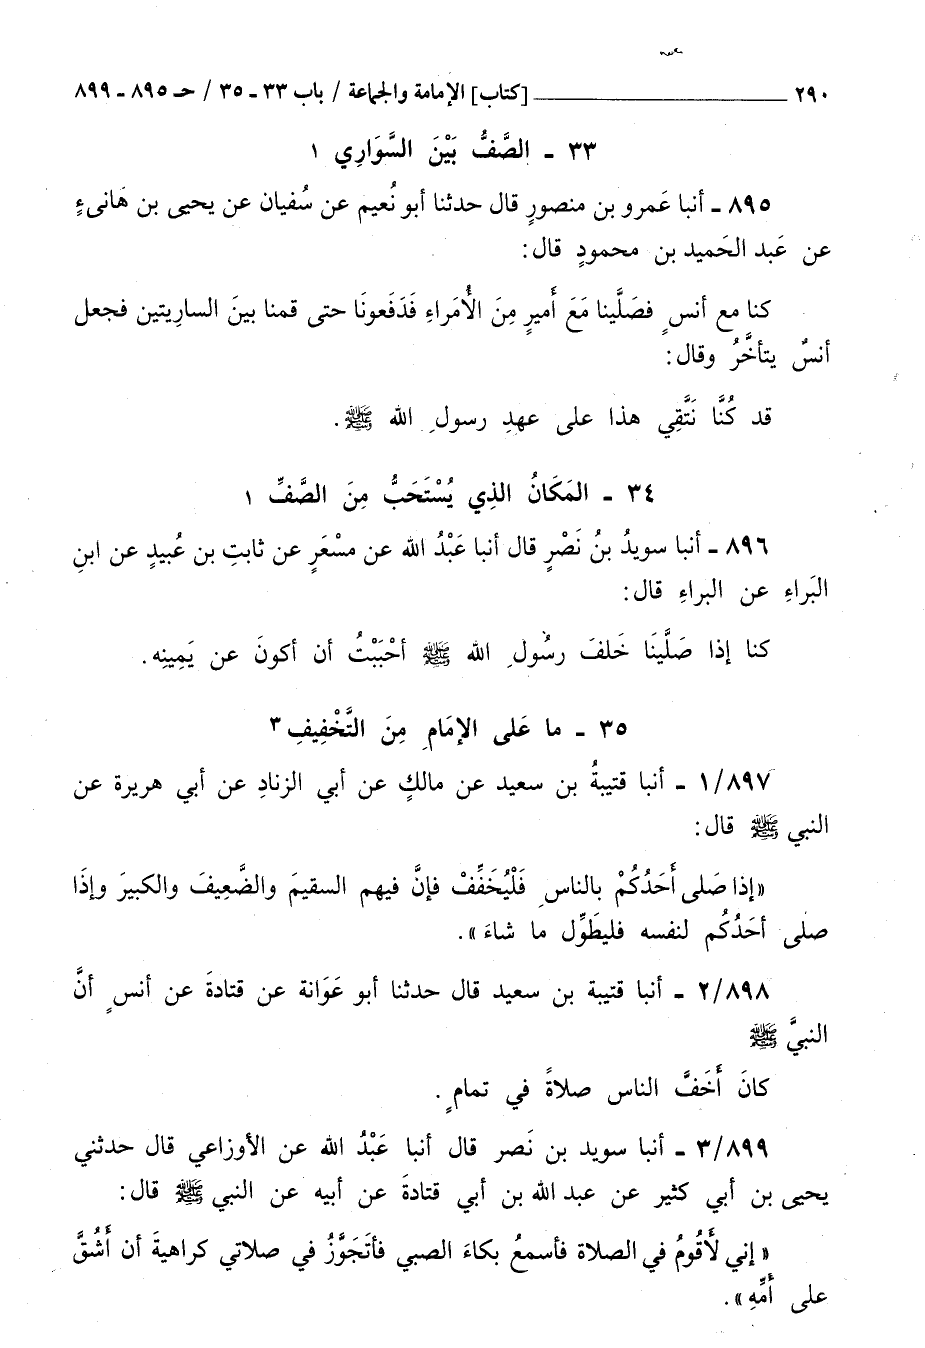 ٢٩٠ ــــــــــــــــــــــــــــــــ [كتاب] الإمامة والجماعة / باب ٣٣ ـ ٣٥ / حـ ٨٩٥ ـ ٨٩٩
٣٣ ـ الصَّفُّ بَيْنَ السَّوَارِي ١
٨٩٥ ـ أنبا عَمرو بن منصورٍ قال حدثنا أبو نُعيم عن سُفيان عن يحيى بن هَانىءٍ
عن عَبد الحَميد بن محمودٍ قال:
كنا مع أنسٍ فصَلَّينا مَعَ أَميرٍ مِنَ الأُمَراءِ فَدَفَعونَا حتى قمنا بينَ السارِيتين فجعل
أنسٌ يتأخَّرُ وقال:
قد كُنَّا نَتَّقِي هذا على عهدِ رسولِ الله ﷺ.
٣٤ ـ المَكَانُ الذِي يُسْتَحَبُّ مِنَ الصَّفِّ ١
٨٩٦ ـ أنبا سويدُ بنُ نَصْرٍ قال أنبا عَبْدُ الله عن مسْعَرٍ عن ثابتِ بن عُبيدٍ عن ابنِ
البَراءِ عن البراءِ قال:
كنا إذا صَلَّينَا خَلفَ رسُولِ الله ﷺ أحْبَبْتُ أن أكونَ عن يَمِينِه.
٣٥ ـ ما عَلى الإمَامِ مِنَ التَّخْفِيفِ ٣
١/٨٩٧ ـ أنبا قتيبةُ بن سعيد عن مالكٍ عن أبي الزنادِ عن أبي هريرة عن
النبي ﷺ قال:
«إذا صَلى أَحَدُكُمْ بالناسِ فَلْيُخَفِّفْ فإنَّ فيهم السقيمَ والضَّعِيفَ والكبيرَ وإذَا
صلى أحَدُكُم لنفسه فليطَوِّل ما شاءَ».
٢/٨٩٨ ـ أنبا قتيبة بن سعيد قال حدثنا أبو عَوَانة عن قتادةَ عن أنسٍ أنَّ
النبيَّ ﷺ
كانَ أَخَفَّ الناس صلاةً في تمامٍ.
٣/٨٩٩ ـ أنبا سويد بن نَصر قال أنبا عَبْدُ الله عن الأوزاعي قال حدثني
يحيى بن أبي كثير عن عبد الله بن أبي قتادةَ عن أبيه عن النبي ﷺ قال:
«إني لَأَقُومُ في الصلاة فأسمعُ بكاءَ الصبي فأتَجَوَّزُ في صلاتي كراهيةَ أن أَشُقَّ
على أُمِّهِ».